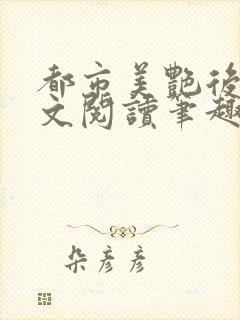 都市美艷後
文閱讀筆趣
朵彦彦